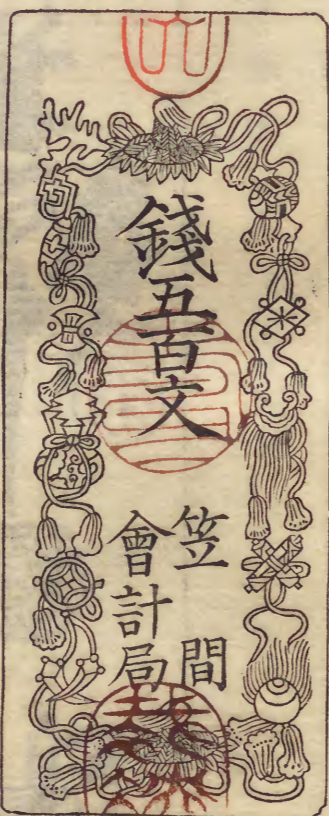 錢五百文
笠間
會計局